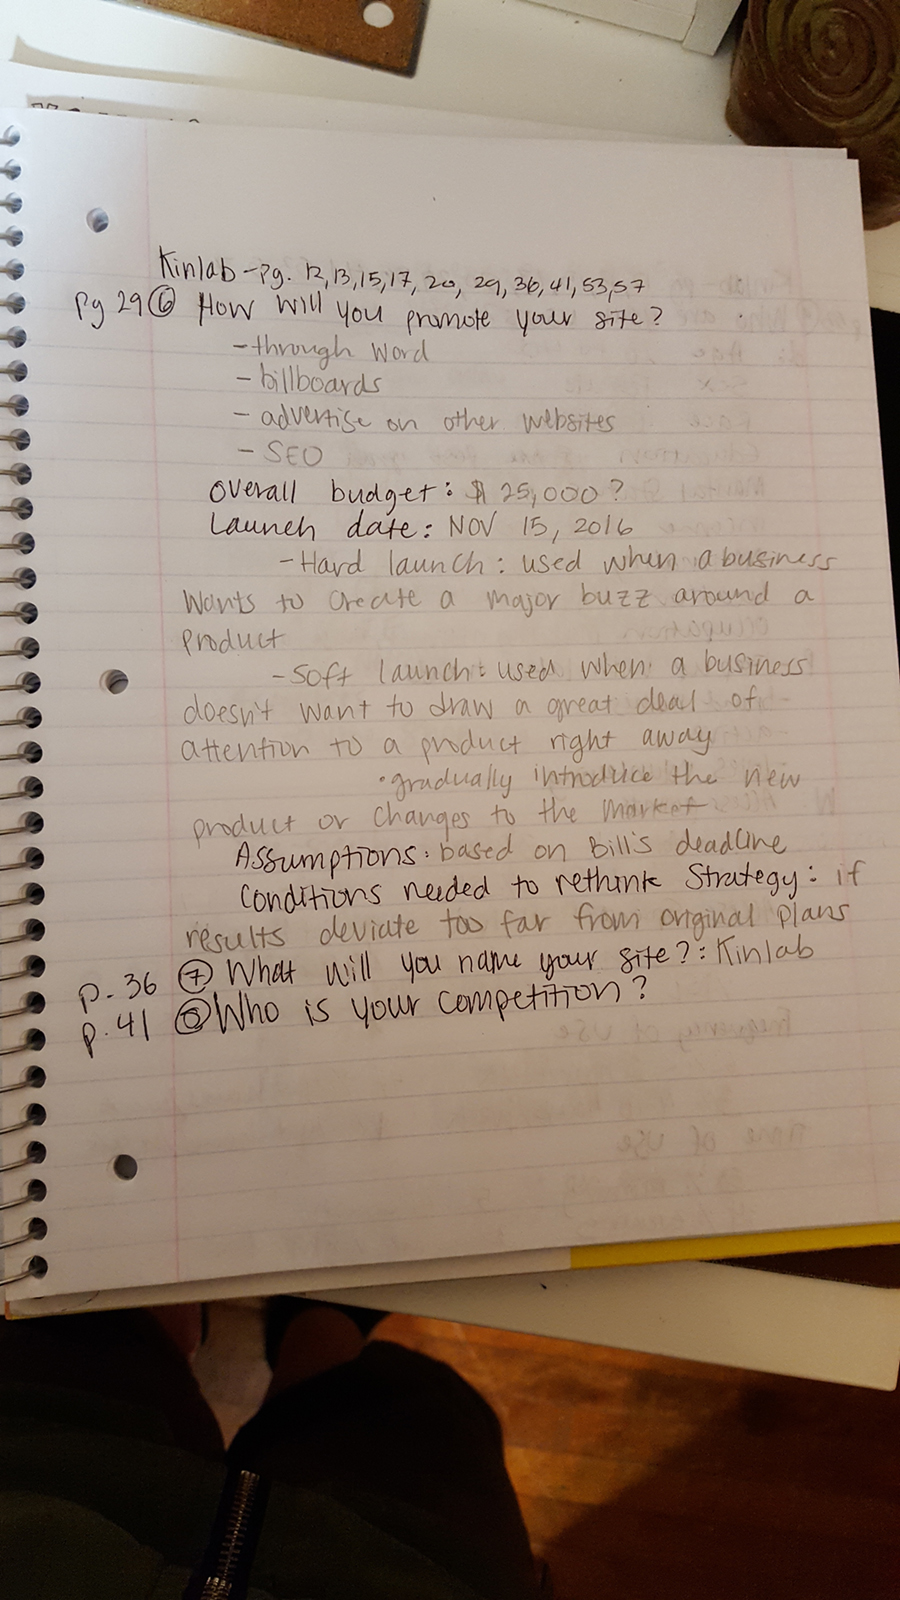 Kinlab - pg. 12,13,15,17,20, 29,36,41,53,57
Pg 29 ⑥ How will you promote your site?
- through word
- billboards
- advertise on other websites
- SEO
Overall budget: $ 25,000?
Launch date: NOV 15, 2016
- Hard launch: used when a business
wants to create a major buzz around a
product
- Soft launch: used when a business
doesn't want to draw a great deal of
attention to a product right away
• gradually introduce the new
product or changes to the market
Assumptions: based on Bill's deadline
Conditions needed to rethink Strategy: if
results deviate too far from original plans
p. 36 ⑦ What will you name your site?: Kinlab
p. 41 ⑧ Who is your competition?
Frequency of use
Time of use